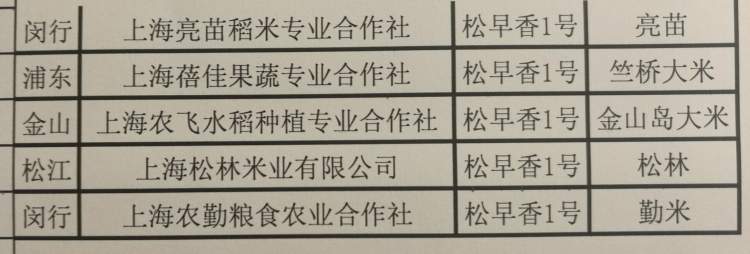 闵行 上海亮苗稻米专业合作社 松早香1号 亮苗
浦东 上海蓓佳果蔬专业合作社 松早香1号 竺桥大米
金山 上海农飞水稻种植专业合作社 松早香1号 金山岛大米
松江 上海松林米业有限公司 松早香1号 松林
闵行 上海农勤粮食农业合作社 松早香1号 勤米